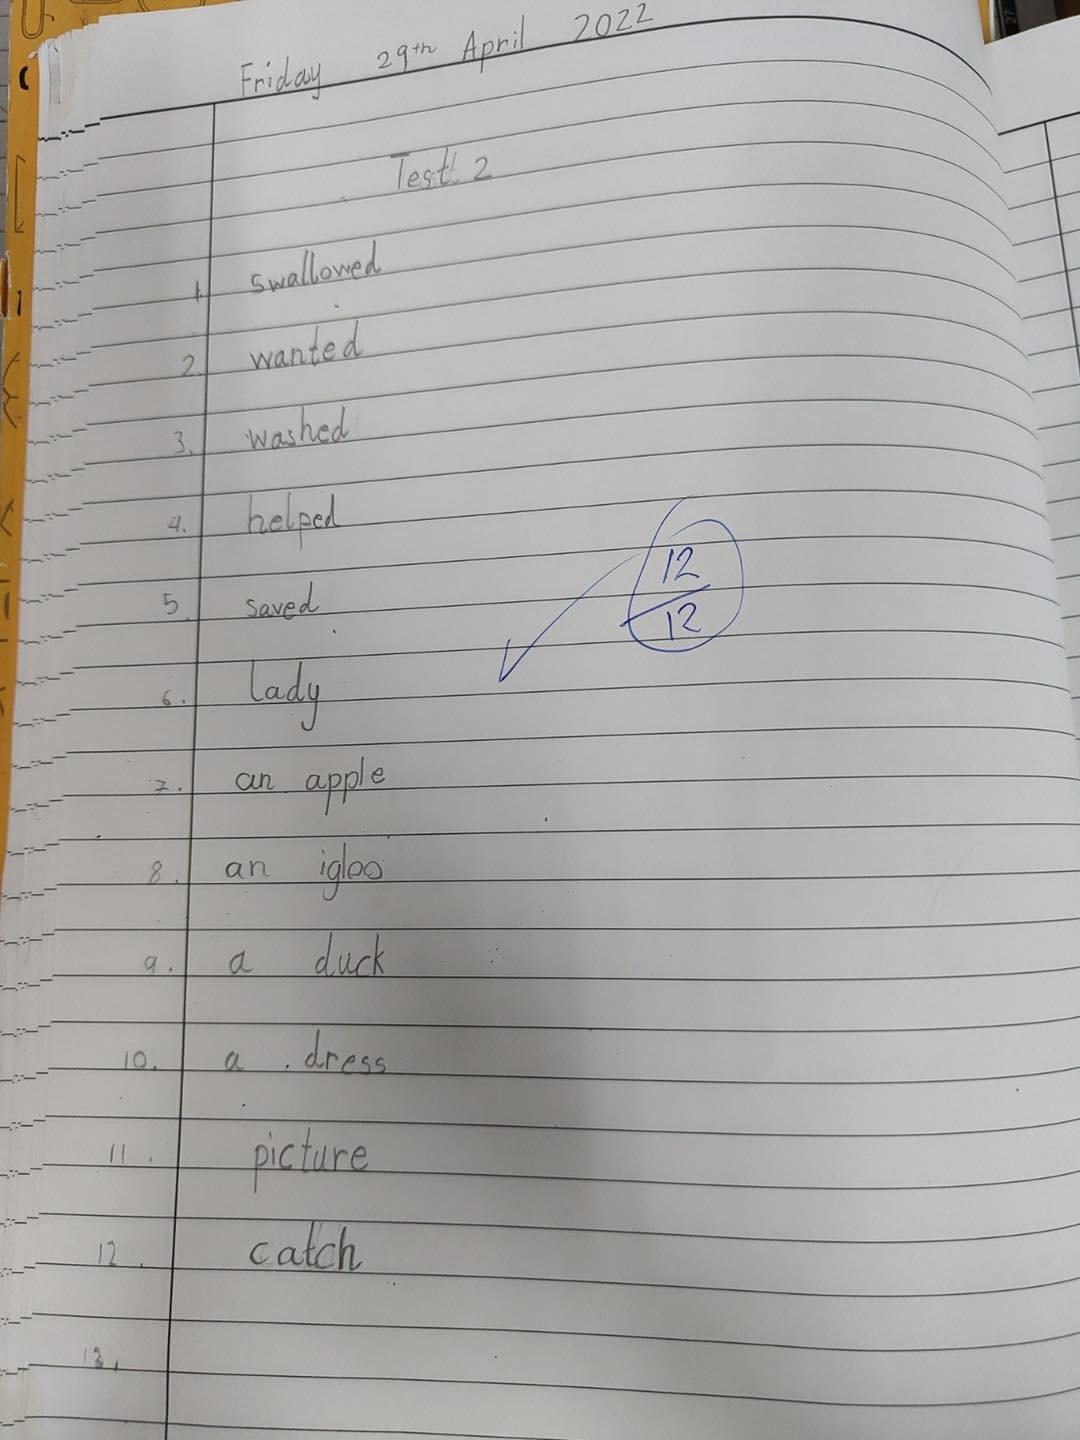 Friday 29th April 2022
Test 2
1. swallowed
2. wanted
3. washed
4. helped
5. saved
6. lady
7. an apple
8. an igloo
9. a duck
10. a dress
11. picture
12. catch
13.
12
12